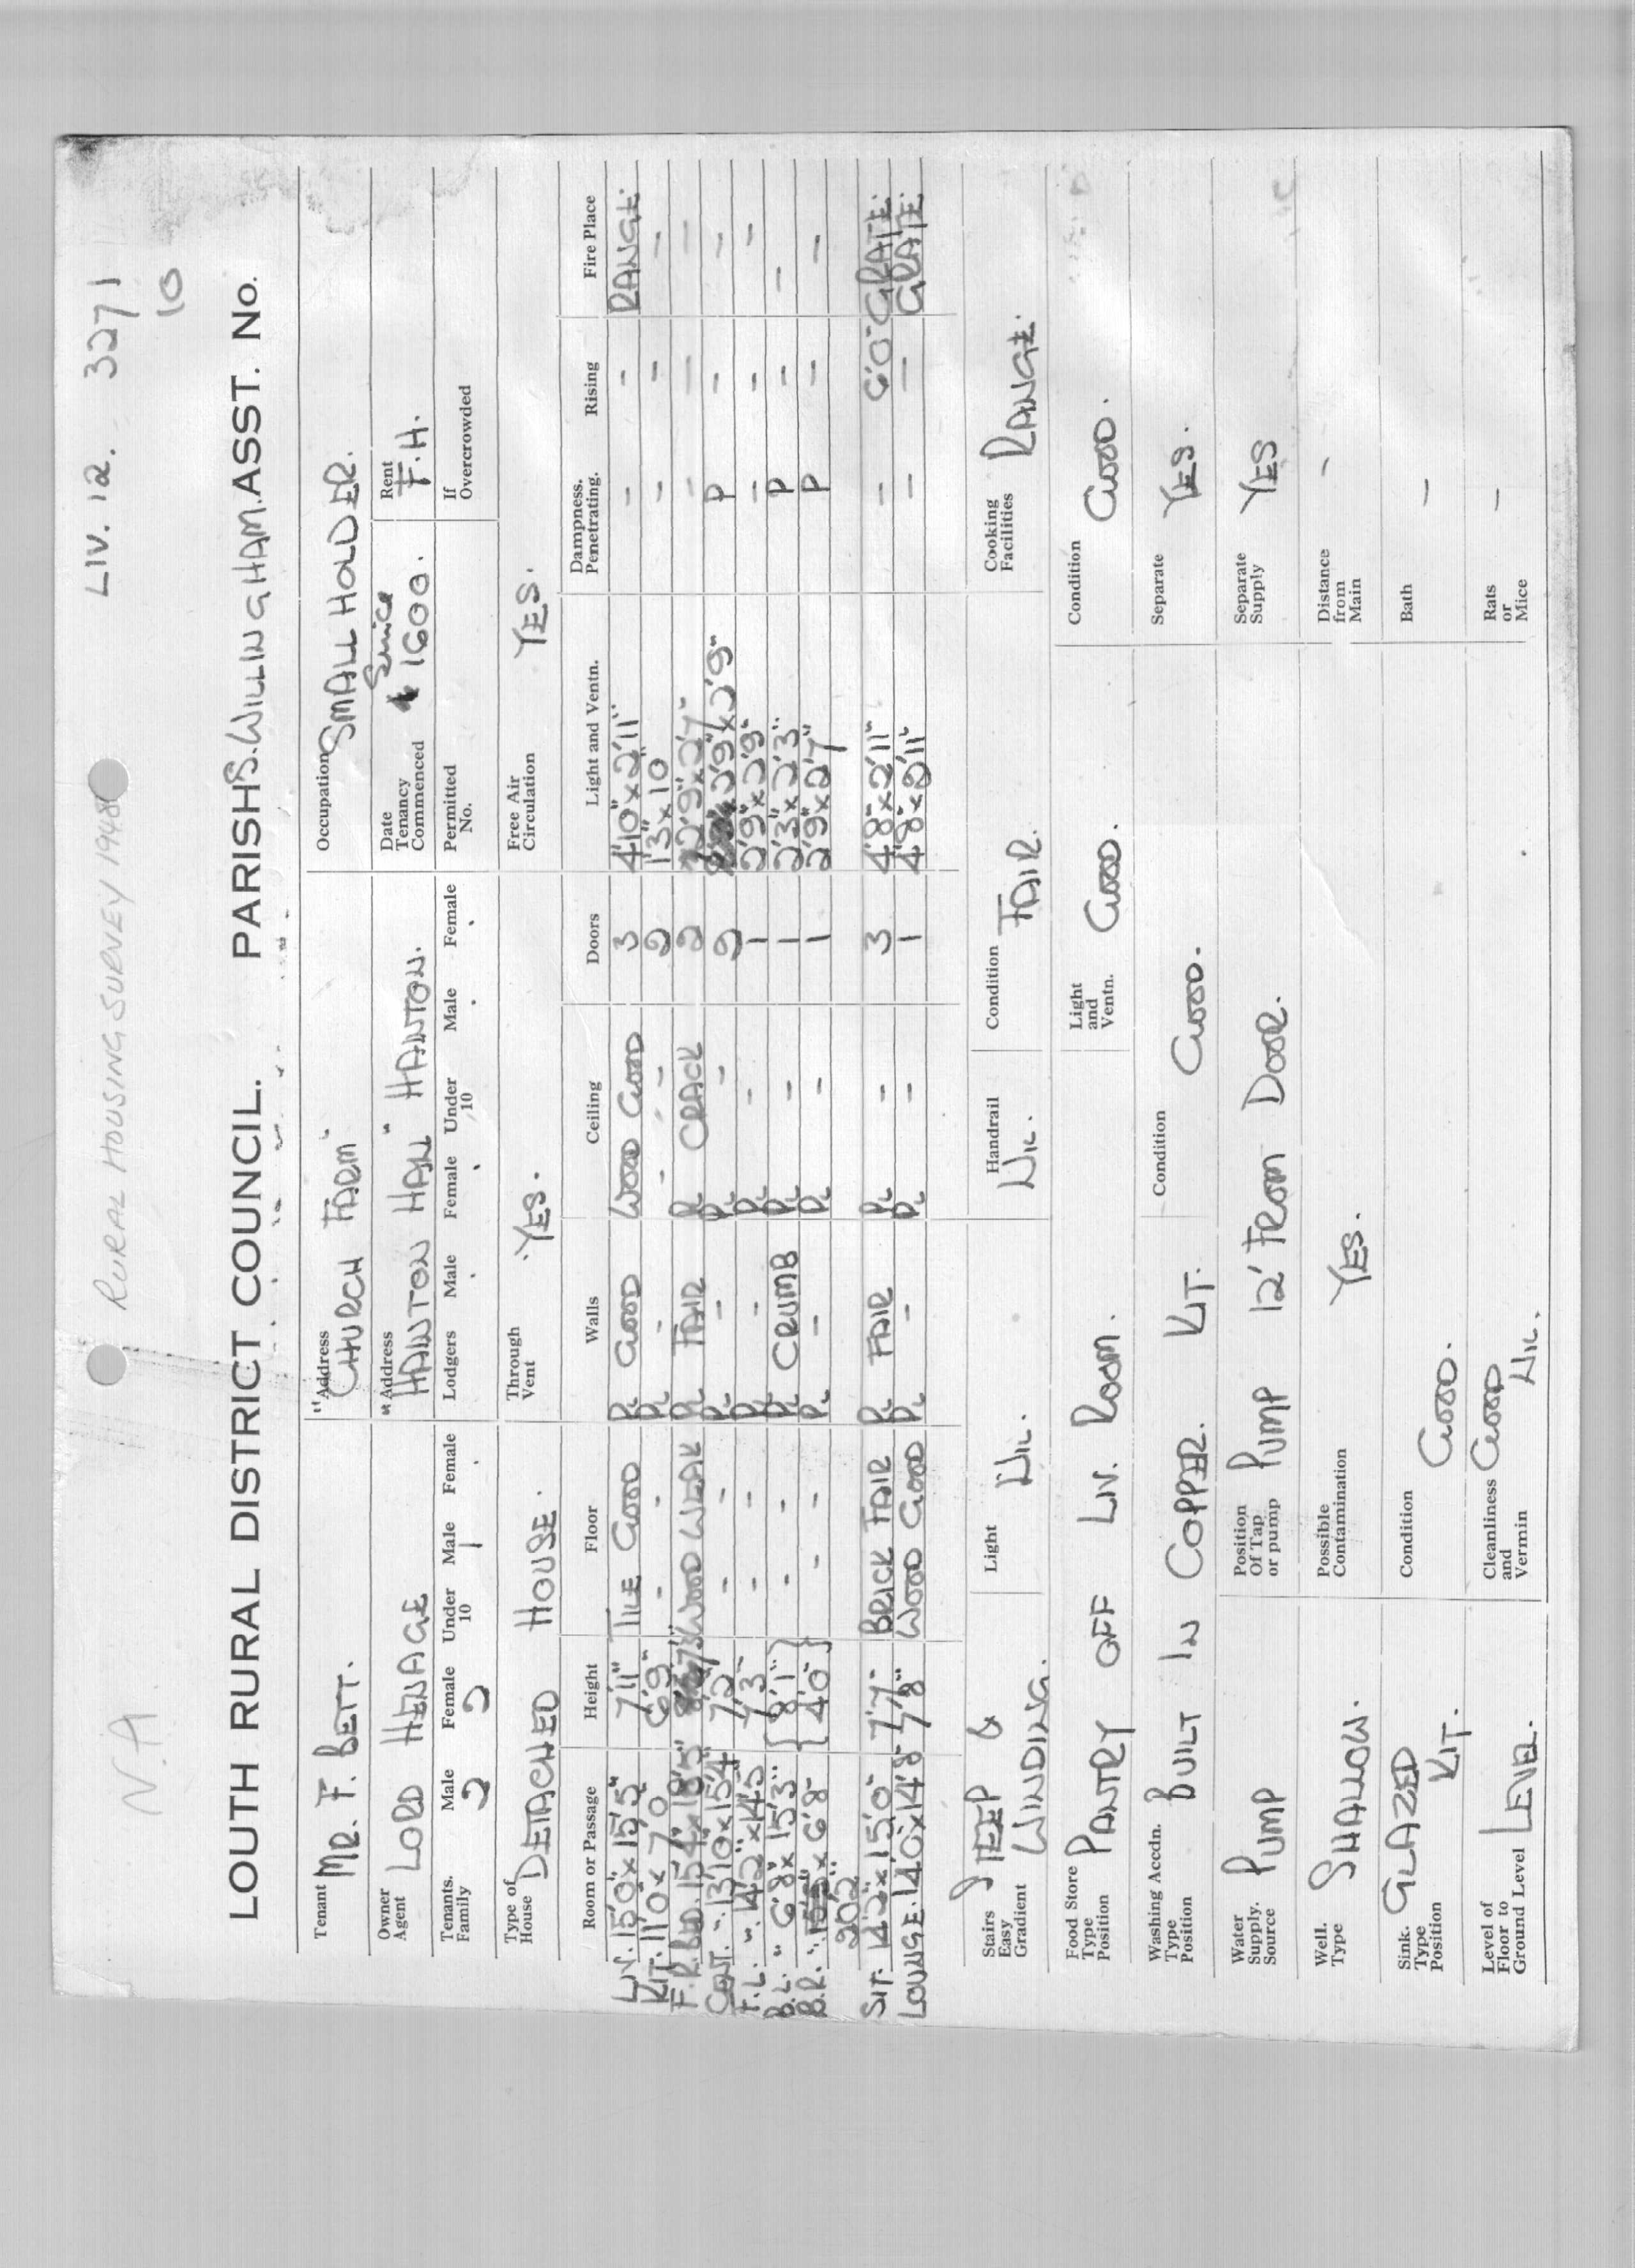 N.A RURAL HOUSING SURVEY 1948 LIV. 12. 3271
10
LOUTH RURAL DISTRICT COUNCIL. PARISH S. WILLINGHAM. ASST. No.
Tenant MR. F. BETT. "Address CHURCH FARM" Occupation SMALL HOLDER.
Owner Agent LORD HENAGE "Address HAINTON HALL" HAINTON. Date Tenancy Commenced Since 1600. Rent F.H.
Tenants. Family Male 2 Female 2 Under 10 Male 1 Female Lodgers Male Female Under 10 Male Female Permitted No. If Overcrowded
Type of House DETACHED HOUSE. Through Vent YES. Free Air Circulation YES.
Room or Passage Height Floor Walls Ceiling Doors Light and Ventn. Dampness. Penetrating. Rising Fire Place
LIV. 15'0" x 15'5" 7'11" TILE GOOD PL GOOD WOOD GOOD 3 4'10" x 2'11" - - RANGE.
KIT. 11'0 x 7'0 6'9" - - PL - - - 2 1'3" x 10 - - -
F.R. BED. 15'4" x 18'5" 7'3" WOOD WEAK PL FAIR PL CRACK 2 2'9" x 2'7" - - -
CENT. " 13'10 x 15'4 7'2" - - PL - PL - 2 2'9" x 2'9" P - -
F.L. " 14'2" x 14'5 7'3" - - PL - PL - 1 2'9" x 2'9" - - -
B.L. " 6'8" x 15'3" { 8'1" } - - PL CRUMB PL - 1 2'3" x 2'3" P - -
B.R. " x 6'8" { 4'0" } - - PL - PL - 1 2'9" x 2'7" P - -
20'2"
SIT. 14'2" x 15'0" 7'7" BRICK FAIR PL FAIR PL - 3 4'8" x 2'11" - 6'0" GRATE.
LOUNGE. 14'0 x 14'8" 7'8" WOOD GOOD PL - PL - 1 4'8" x 2'11" - - GRATE.
Stairs Easy Gradient STEEP & WINDING. Light NIL. Handrail NIL. Condition FAIR. Cooking Facilities RANGE.
Food Store Type Position PANTRY OFF LIV. ROOM. Light and Ventn. GOOD. Condition GOOD.
Washing Accdn. Type Position BUILT IN COPPER. KIT. Condition GOOD. Separate YES.
Water Supply. Source PUMP Position Of Tap or pump PUMP 12' FROM DOOR. Separate Supply YES
Well. Type SHALLOW. Possible Contamination YES. Distance from Main -
Sink. Type Position GLAZED KIT. Condition GOOD. Bath -
Level of Floor to Ground Level LEVEL. Cleanliness and Vermin GOOD NIL. Rats or Mice -